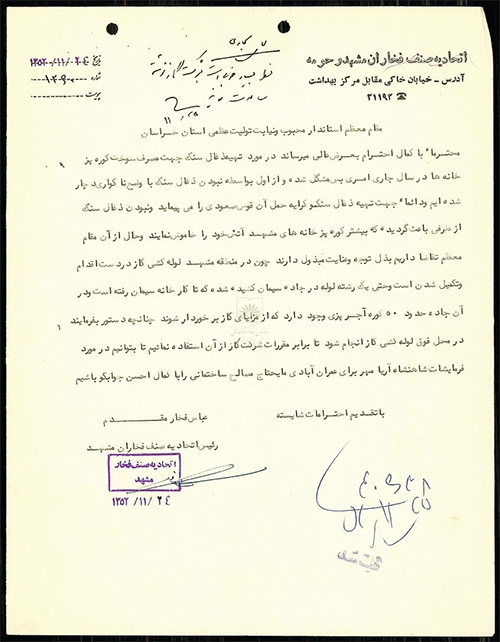 اتحادیه صنف فخاران مشهد و حومه
آدرس - خیابان خاکی مقابل مرکز بهداشت
☎ ۲۱۱۹۲
تاریخ ۱۳۵۲/۱۱/۲۴
شماره
پیوست
مقام معظم استاندار محبوب ونیابت تولیت عظمی استان خراسان
محترما" با کمال احترام بعرض عالی میرساند در مورد تهیه ذغال سنگ جهت مصرف سوخت کوره پز
خانه ها در سال جاری امری بس مشکل شده و از اول بواسطه نبودن ذغال سنگ با وضع ناگواری دچار
شده ایم ودائما" جهت تهیه ذغال سنگ و کرایه حمل آن قوس صعودی را می پیماید ونبودن ذغال سنگ
از طرفی باعث گردیده که بیشتر کوره پز خانه های مشهد آتش خود را خاموش نمایند وحال از آن مقام
معظم تقاضا داریم بذل توجه وعنایت مبذول دارند چون در منطقه مشهد لوله کشی گاز در دست اقدام
وتکمیل شدن است وحتی یک رشته لوله در جاده سیمان کشیده شده که تا کار خانه سیمان رفته است ودر
آن جاده حدود ۵۰ کوره آجر پزی وجود دارد که از مزایای گاز بر خوردار شوند چنانچه دستور بفرمایند
در محل فوق لوله کشی گاز انجام شود تا برابر مقررات شرکت گاز از آن استفاده نمائیم تا بتوانیم در مورد
فرمایشات شاهنشاه آریا مهر برای عمران آبادی مایحتاج مصالح ساختمانی را با کمال احسن جوابگو باشیم
با تقدیم احترامات شایسته
عباس فخار مقدم
رئیس اتحادیه صنف فخاران مشهد
اتحادیه صنف فخار
مشهد
۱۳۵۲/۱۱/۲۴
ثبت شد